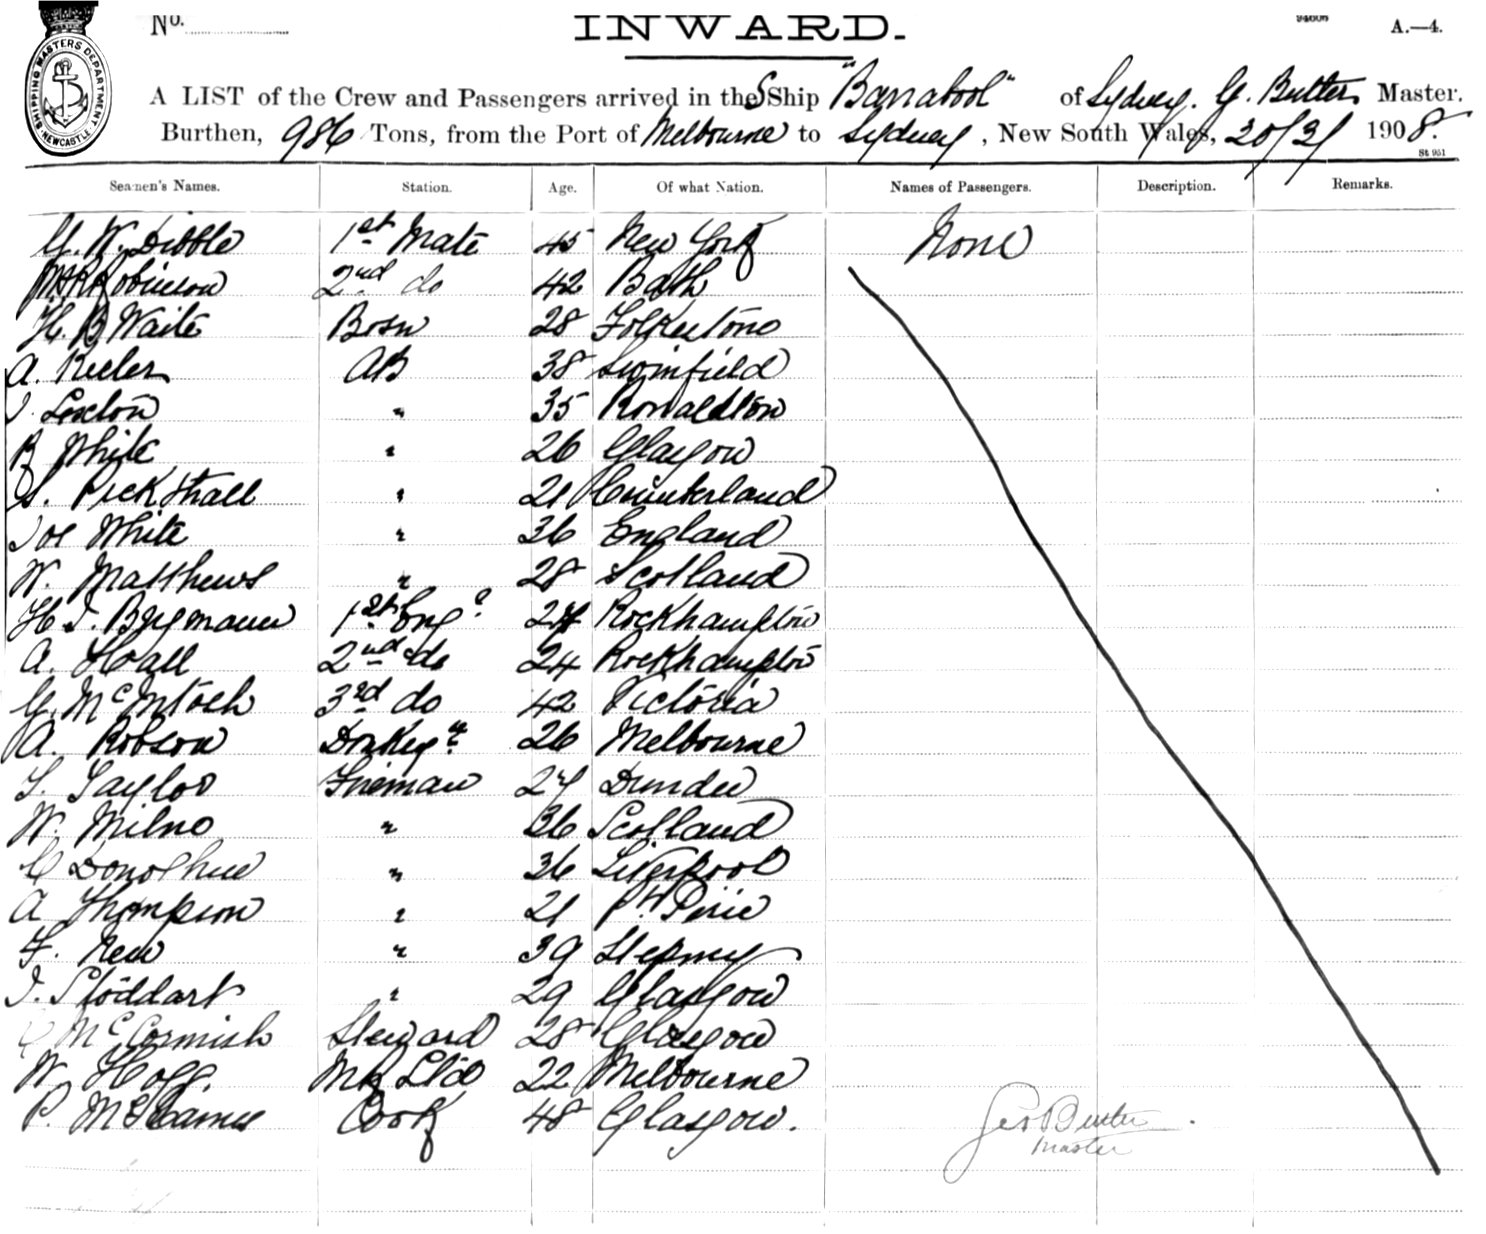 SHIPPING MASTERS DEPARTMENT
NEWCASTLE
No.
INWARD.
A.—4.
A LIST of the Crew and Passengers arrived in the SShip "Barrabool" of Sydney. G. Butler Master.
Burthen, 986 Tons, from the Port of Melbourne to Sydney, New South Wales, 20/3/ 1908.
St 951
Seamen's Names. Station. Age. Of what Nation. Names of Passengers. Description. Remarks.
G. W. Dibble 1st Mate 45 New York None
Robinson 2nd do 42 Bath
H. B Waite Bosn 28 Folkestone
A. Keeler AB 38 Swinfield
J. Sexton " 35 Ronaldton
B White " 26 Glasgow
S. Pickthall " 21 Cumberland
Joe White " 36 England
W. Matthews " 28 Scotland
H. J. Bergmann 1st Engr 24 Rockhampton
A. Hall 2nd do 24 Rockhampton
G. McIntosh 3rd do 42 Victoria
A. Robson Donkeyn 26 Melbourne
T. Taylor Fireman 27 Dundee
W. Milne " 36 Scotland
C Donoghue " 36 Liverpool
A Thompson " 21 Pt Pirie
F. New " 39 Stepney
J. Stoddart " 29 Glasgow
McCormish Steward 28 Glasgow
W. Hogg. Std 22 Melbourne
P. Cook 48 Glasgow.
Geo Butler
Master